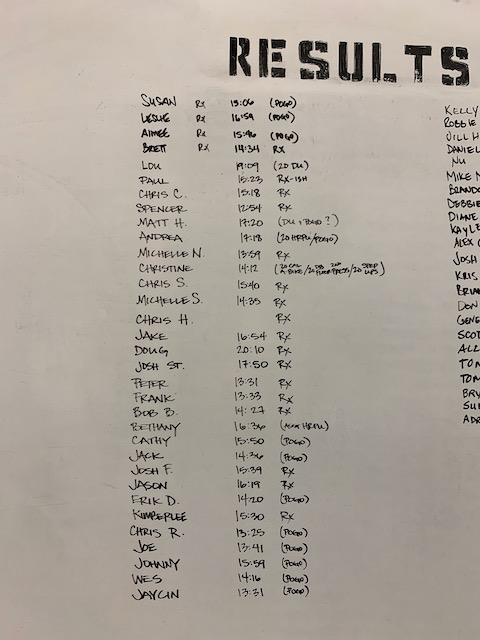 RESULTS
SUSAN Rx 15:06 (POGO)
LESLIE Rx 16:59 (POGO)
AIMEE Rx 15:46 (POGO)
BRETT Rx 14:34 Rx
LOU 19:09 (20 DU)
PAUL 15:23 RX-ISH
CHRIS C. 15:18 Rx
SPENCER 12:54 Rx
MATT H. 17:20 (DU + POGO?)
ANDREA 17:18 (20 HRPU/POGO)
MICHELLE N. 13:59 Rx
CHRISTINE 14:12
CHRIS S. 15:40 Rx
MICHELLE S. 14:35 Rx
CHRIS H. Rx
JAKE 16:54 Rx
DOUG 20:10 Rx
JOSH ST. 17:50 Rx
PETER 13:31 Rx
FRANK 13:33 Rx
BOB B. 14:27 Rx
BETHANY 16:36
CATHY 15:50 (POGO)
JACK 14:36 (POGO)
JOSH F. 15:39 Rx
JASON 16:19 Rx
ERIK D. 14:20 (POGO)
KIMBERLEE 15:30 Rx
CHRIS R. 13:25 (POGO)
JOE 13:41 (POGO)
JOHNNY 15:59 (POGO)
WES 14:16 (POGO)
JAYLIN 13:31 (POGO)
KELLY
ROBBIE
JILL H
DANIEL
NU
MIKE M
BRANDO
DEBBIE
DIANE
KAYLE
ALEX
JOSH
KRIS
BRIA
DON
GENE
SCOT
ALL
TON
TOM
BRY
SU
ADR